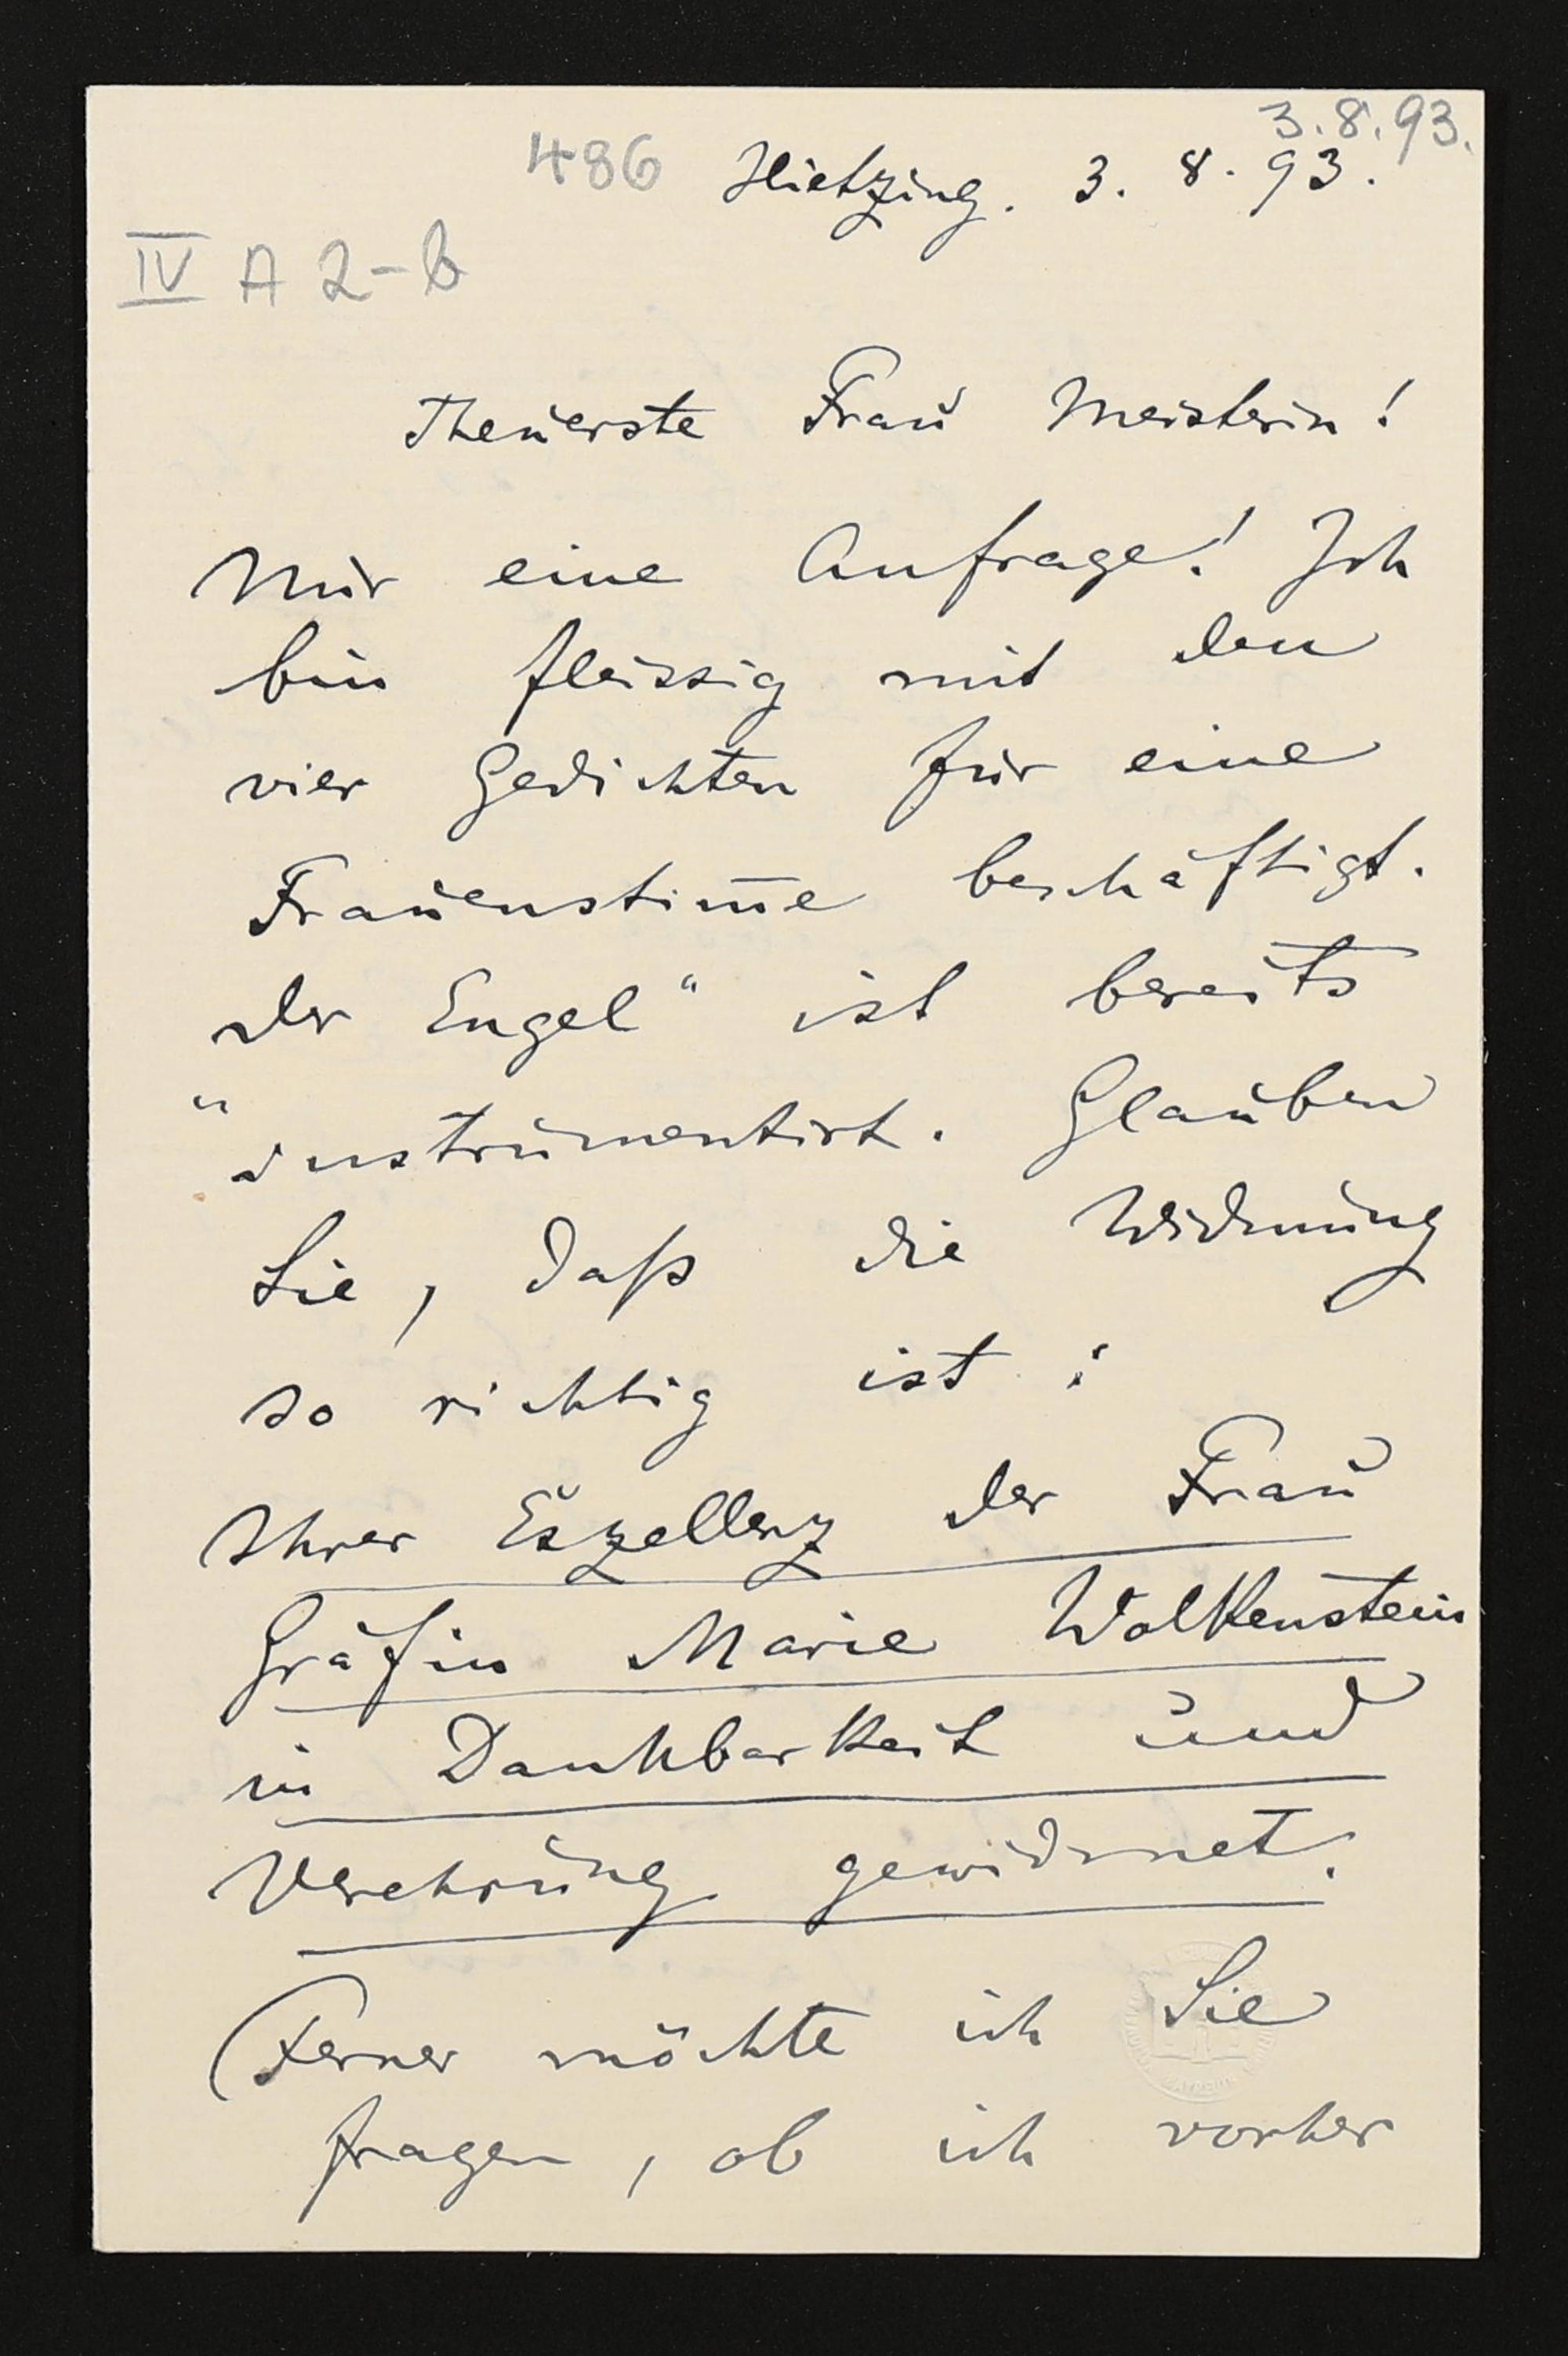 3.8.93.
486 Hietzing. 3. 8. 93.
IV A 2-b
Theuerste Frau Meisterin!
Nur eine Anfrage! Ich
bin fleissig mit den
vier Gedichten für eine
Frauenstim̅e beschäftigt.
der Engel“ ist bereits
„instrumentirt. Glauben
Sie, daß die Widmung
so richtig ist:
Ihrer Exzellenz der Frau
Gräfin Marie Wolkenstein
in Dankbarkeit und
Verehrung gewidmet.
(Ferner möchte ich Sie
fragen, ob ich vorher